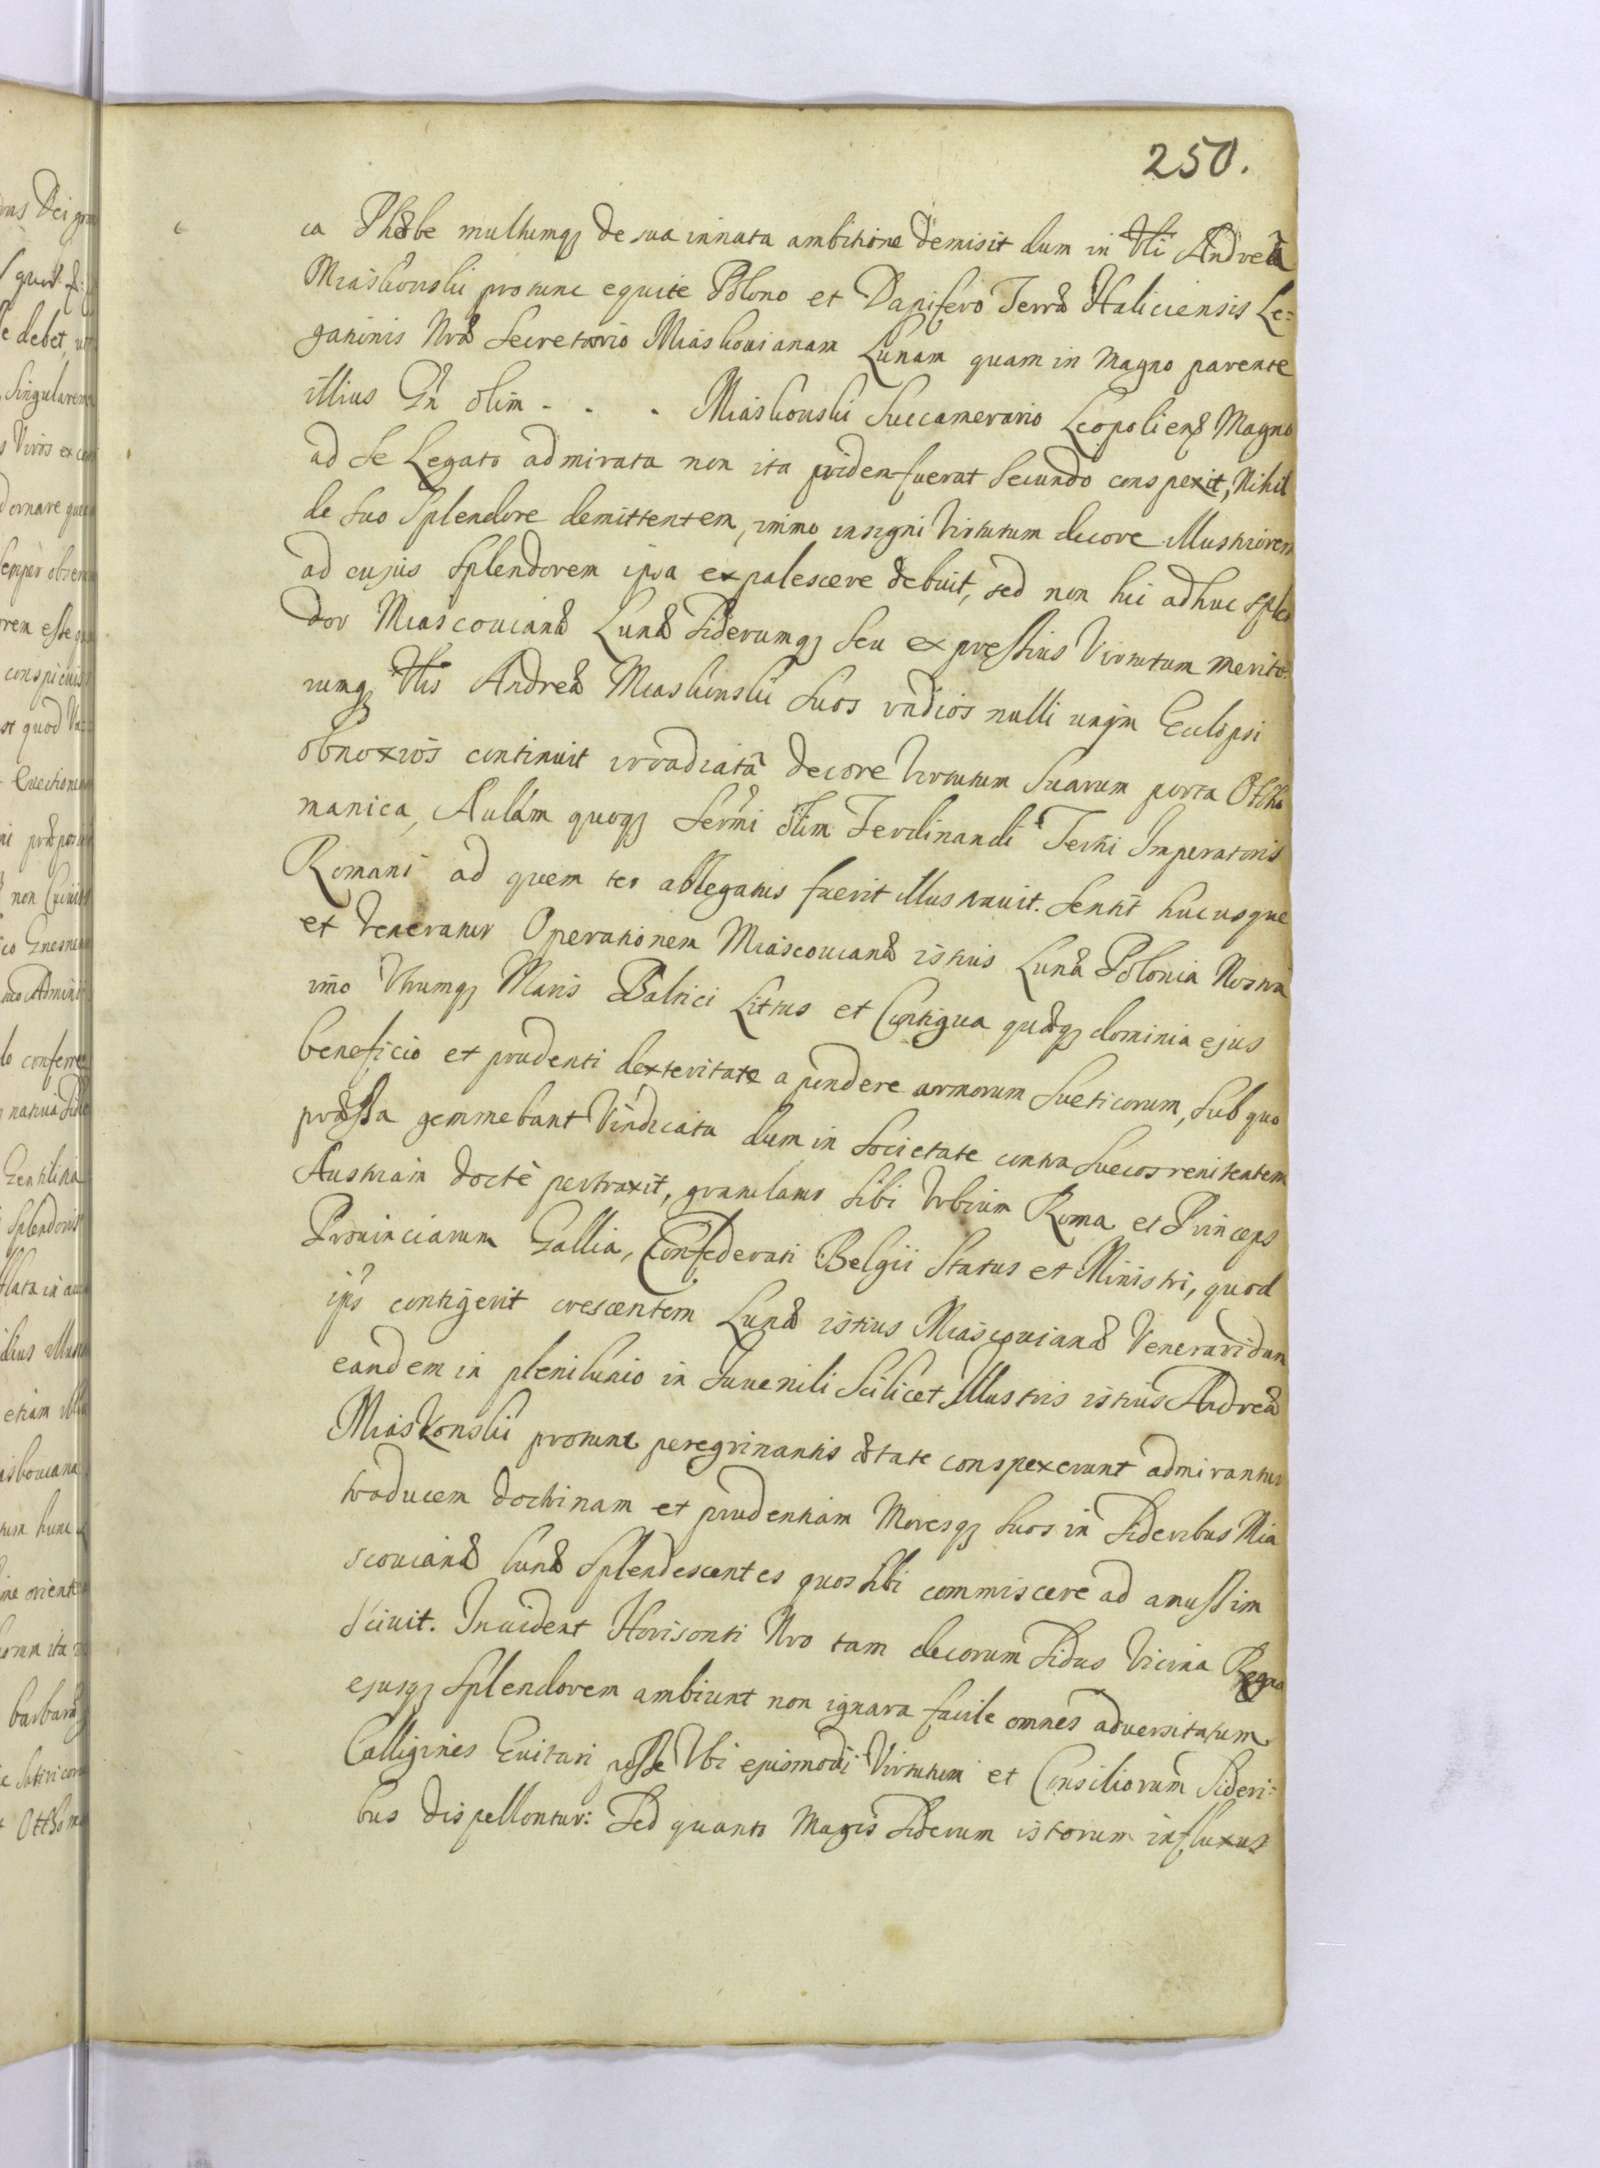 250.
ca Phæbe multumq₃ de sua innata ambitione demisit dum in Illi Andreæ
Miaskowski protunc equite Polono et Dapifero Terræ Haliciensis Le=
gationis Nræ Secretario Miaskovianam Lunam quam in Magno parente
illius Gñ olim . . . Miaskowski Succamerario Leopoliens Magno
ad se Legato admirata non ita pridem fuerat secundo conspexit, Nihil
de suo Splendore demittentem, immo insigni Virtutum decore Illustriorem
ad cujus Splendorem ipsa expalescere debuit, sed non hic adhuc splen
dor Miascovianæ Lunæ Siderumq₃ seu expressius Virtutum merito
rumq₃ Illis Andreæ Miaskowski suos radios nulli unqm Eclipsi
obnoxios continuit irradiatã decore Virtutum suarum porta Otho
manica, Aulam quoq₃ Sermi olim Ferdinandi Tertii Imperatoris
Romani ad quem ter ablegatus fuerit illustravit. Sentit hucusque
et Veneratur Operationem Miascovianæ istius Lunæ Polonia Nostra
imo Utrumq₃ Maris Baltici Littus et Contigua quæq₃ dominia ejus
beneficio et prudenti dexteritate a pondere armorum Sueticorum, sub quo
præssa gemmebant Vindicata dum in Societate contra Suecos renitentem
Austriam doctè pertraxit, gratulatur sibi Urbium Roma et Princeps
Provinciarum Gallia, Confederati Belgii Status et Ministri, quod
ips contigerit crescentem Lunæ istius Miascovianæ Venerari dum
eandem in plenilunio in Juvenili Scilicet Illustris istius Andreæ
Miaskonski protunc peregrinantis ætate conspexerunt admirantur
traducem doctrinam et prudentiam Moresq₃ suos in Sideribus Mia
scovianæ lunæ Splendescentes quos sibi commiscere ad amussim
scivit. Invident Horisonti Nro tam decorum Sidus Vicina Regna
ejusq₃ Splendorem ambiunt non ignara facile omnes adversitatum
Calligines Evitari posse Ubi ejusmodi Virtutum et Consiliorum Sideri=
bus dispellontur: Sed quanto Magis Siderum istorum influxus